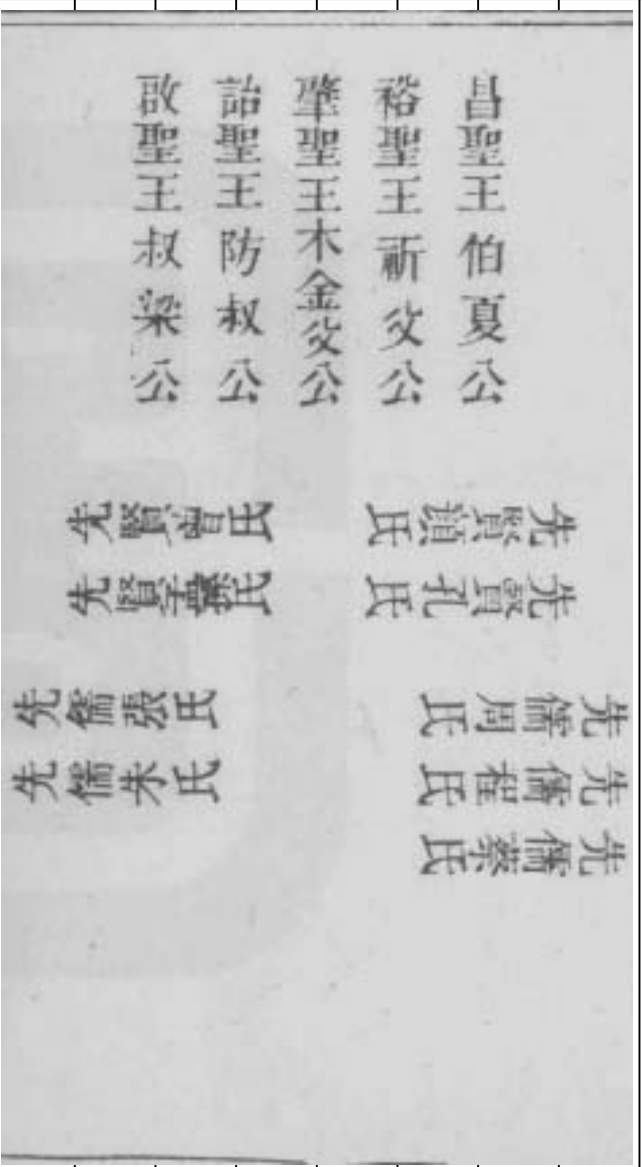 昌聖王伯夏公
裕聖王祈父公
肇聖王木金父公
詒聖王防叔公
啟聖王叔梁公
先賢顔氏
先賢孔氏
先儒周氏
先儒程氏
先儒蔡氏
先賢曾氏
先賢孟孫氏
先儒張氏
先儒朱氏